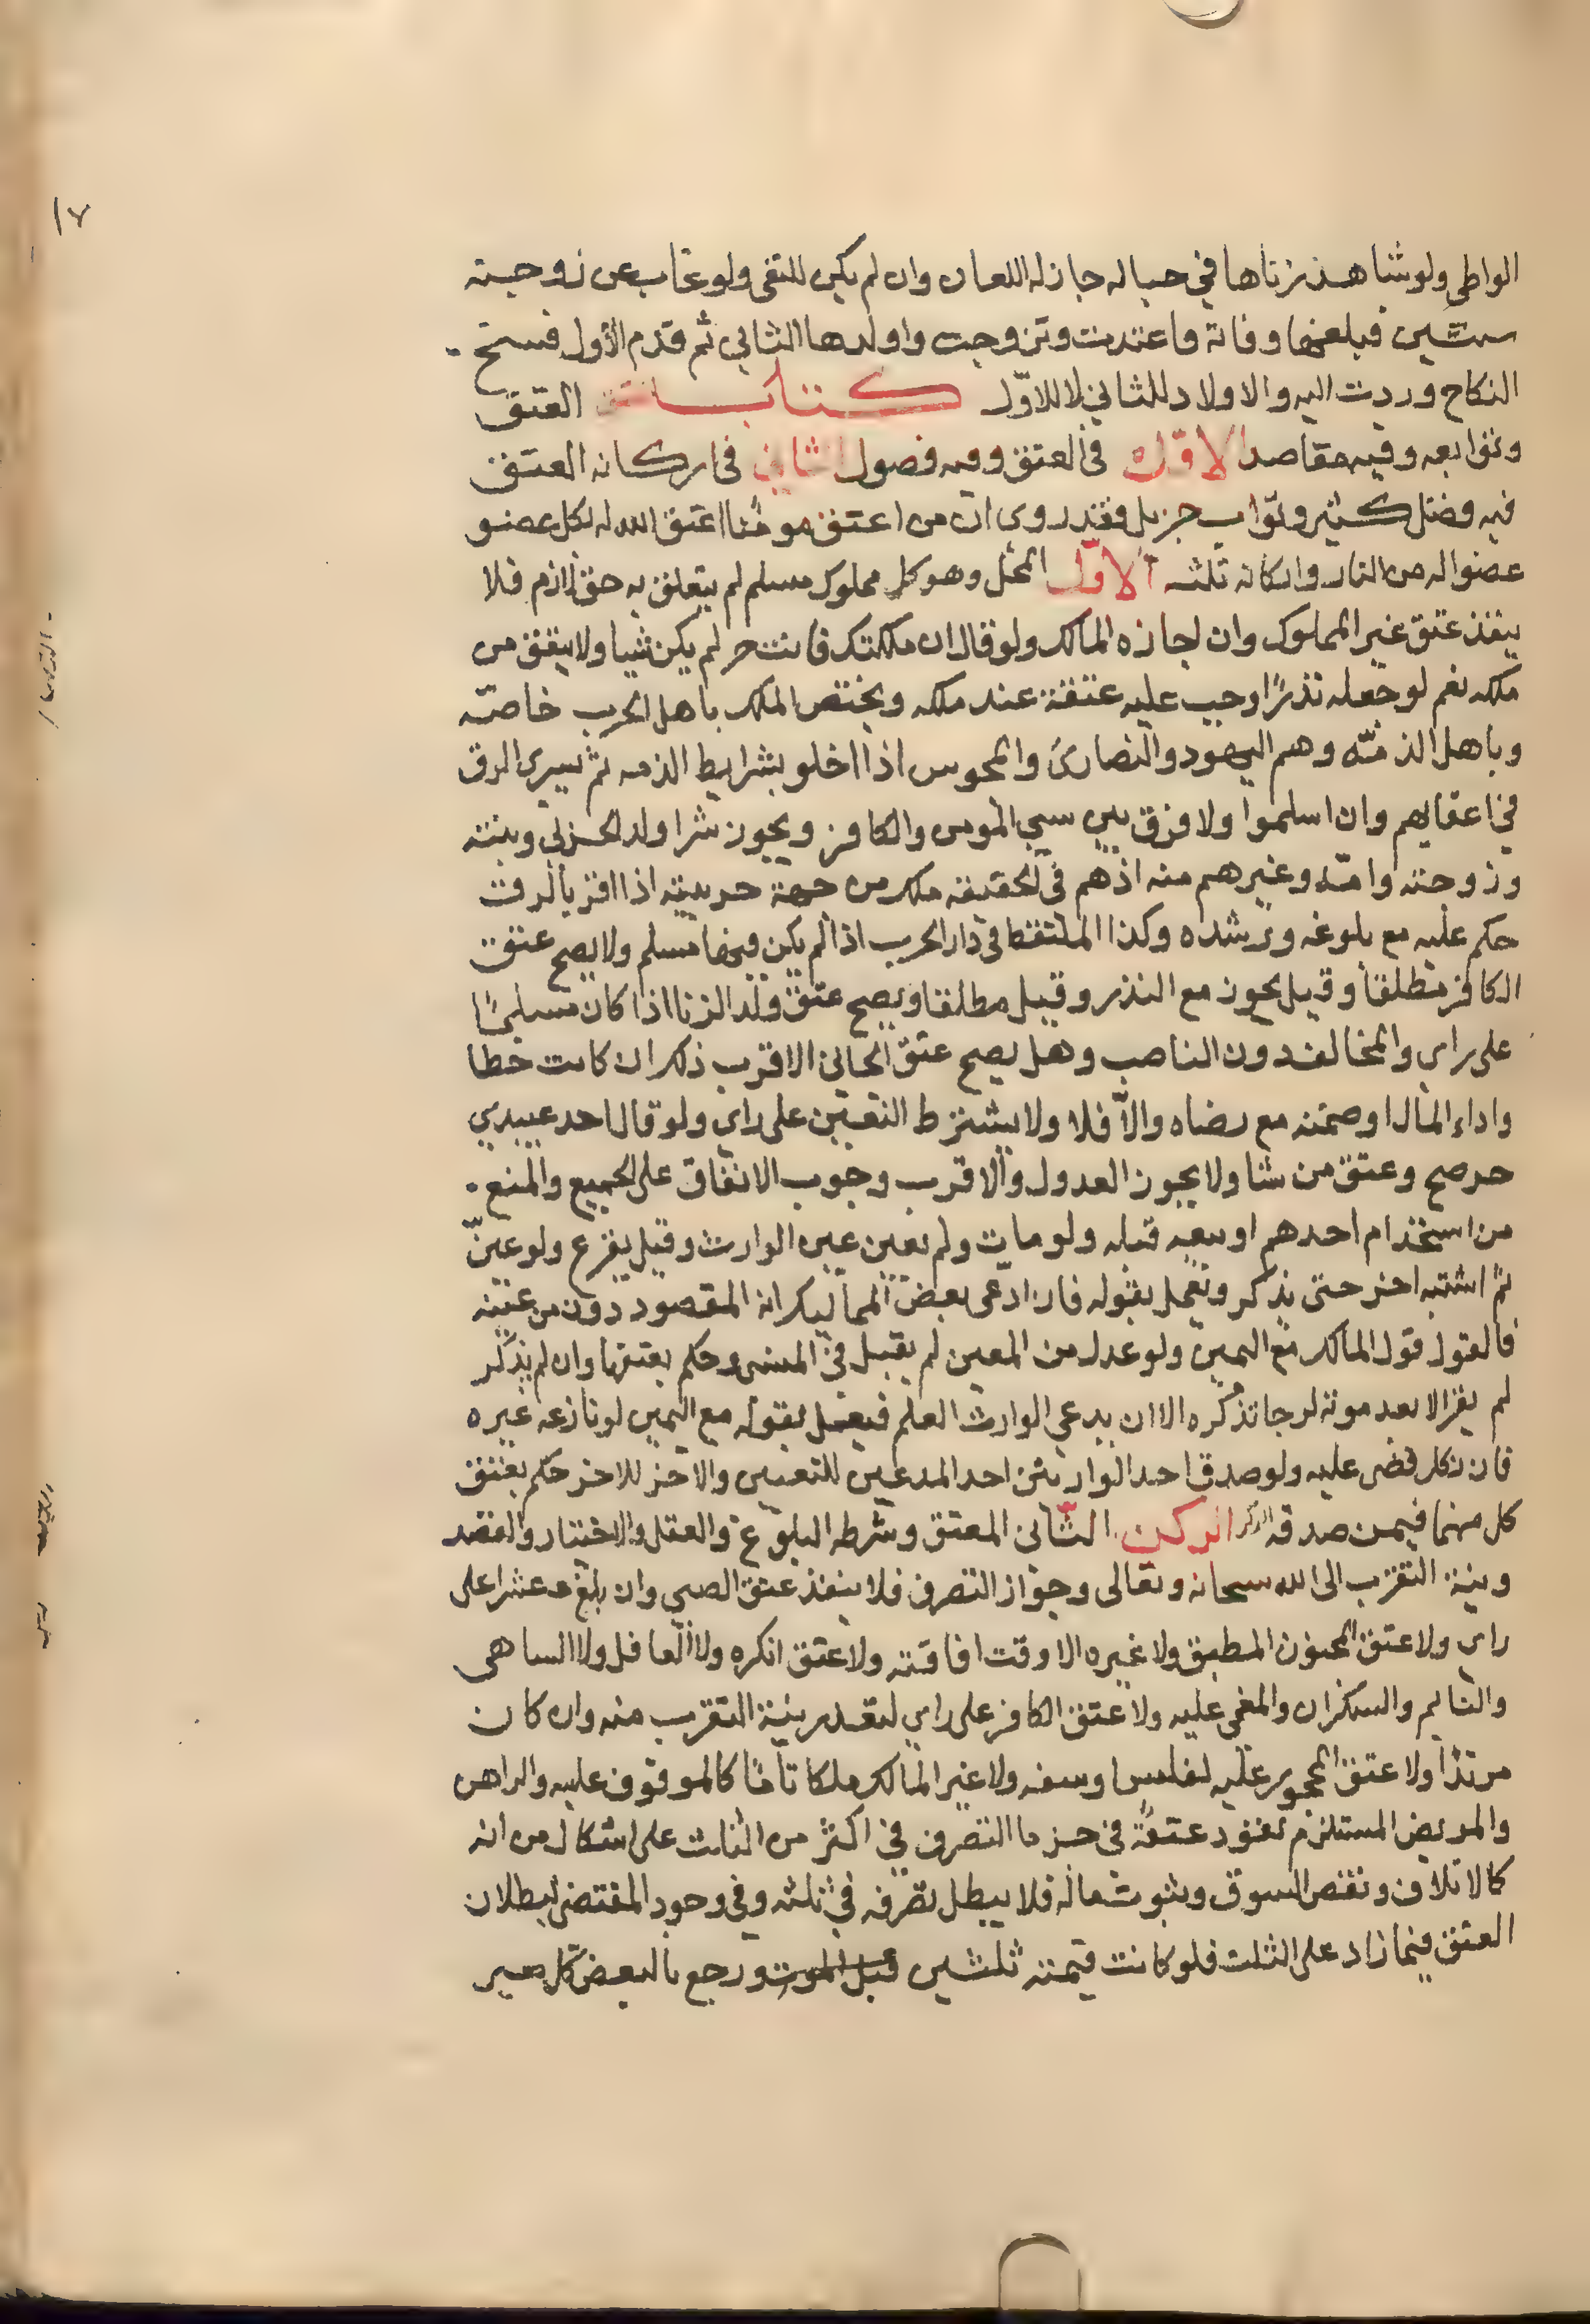 ١٧
الواطى ولو شاهد زناها في حباله جاز له اللعان وان لم يكن للنفى ولو غاب عن زوجته
سنتين فبلغها وفاته فاعتدت وتزوجت واولدها الثاني ثم قدم الأول فسخ
النكاح وردت اليه والاولاد للثاني لا للاوّل كتاب العتق
وتوابعه وفيه مقاصد الاوّل في العتق وفيه فصول الثاني في اركانه العتق
فيه فضل كثير وثواب جزيل فقد روى ان من اعتق مومنا اعتق الله له بكل عضو
عضوا له من النار واركانه ثلثه الاوّل المحل وهو كل مملوك مسلم لم يتعلق به حق لازم فلا
ينفذ عتق غير المملوك وان اجازه المالك ولو قال ان ملكتك فانت حر لم يكن شيا ولا ينعتق من
ملكه نعم لو جعله نذرًا وجب عليه عتقه عند ملكه ويختص الملك باهل الحرب خاصّه
وباهل الذمّه وهم اليهود والنصارى والمجوس اذا اخلو بشرايط الذمه ثم يسرى الرق
في اعقابهم وان اسلموا ولا فرق بين سبي المومن والكافر ويجوز شرا ولد الحربي وبنته
وزوجته وامّه وغيرهم منه اذ هم في الحقيقه ملك من جهة حربيته اذا اقر بالرقت
حكم عليه مع بلوغه ورشده وكذا الملتقط في دار الحرب اذا لم يكن فيها مسلم ولا يصح عتق
الكافر مطلقا وقيل يجوز مع النذر وقيل مطلقا ويصح عتق ولد الزنا اذا كان مسلمًا
على راي والمخالف دون الناصب وهل يصح عتق الجاني الاقرب ذلك ان كانت خطا
واداء المال او ضمنه مع رضاه والاّ فلا ولا يشترط التعيين على راي ولو قال احد عبيدي
حر صح وعتق من شا ولا يجوز العدول والاقرب وجوب الانفاق على الجميع والمنع
من استخدام احدهم او بيعه قبله ولو مات ولم يعين عين الوارث وقيل يقرع ولو عيّن
ثمّ اشتبه اخر حتى يذكر ويعمل بقوله فان ادعى بعض المماليك انه المقصود دون من عينه
فالقول قول المالك مع اليمين ولو عدل من المعين لم يقبل في المنسى وحكم بعتقها وان لم يذكر
لم يقر الا بعد موته لرجا تذكره الا ان يدعي الوارث العلم فيعمل بقوله مع اليمين لو نازعه غيره
فان نكل قضى عليه ولو صدق احد الوارثين احد المدعيين للتعيين والاخر للاخر حكم بعتق
كل منهما فيمن صدقه الركن الثّاني المعتق وشرطه البلوغ والعقل والاختيار والقصد
ونية التقرب الى الله سبحانه وتعالى وجواز التصرف فلا ينفذ عتق الصبي وان بلغ عشرا على
راي ولا عتق المجنون المطبق ولا غيره الا وقت افاقته ولا عتق المكره ولا الغافل ولا الساهى
والنايم والسكران والمغمى عليه ولا عتق الكافر على راي لتعذر نية التقرب منه وان كان
مرتدًا ولا عتق المحجور عليه لفلس او سفه ولا غير المالك ملكا تامّا كالموقوف عليه والراهن
والمريض المستلزم نفوذ عتقه في جزما التصرف في اكثر من الثلث على اشكال من انه
كالاتلاف ونقص السوق وثبوت ماله فلا يبطل تصرفه في ثلثه وفي وجود المقتضى لبطلان
العتق فيما زاد على الثلث فلو كانت قيمته ثلثين قبل الموت ورجع بالبعض